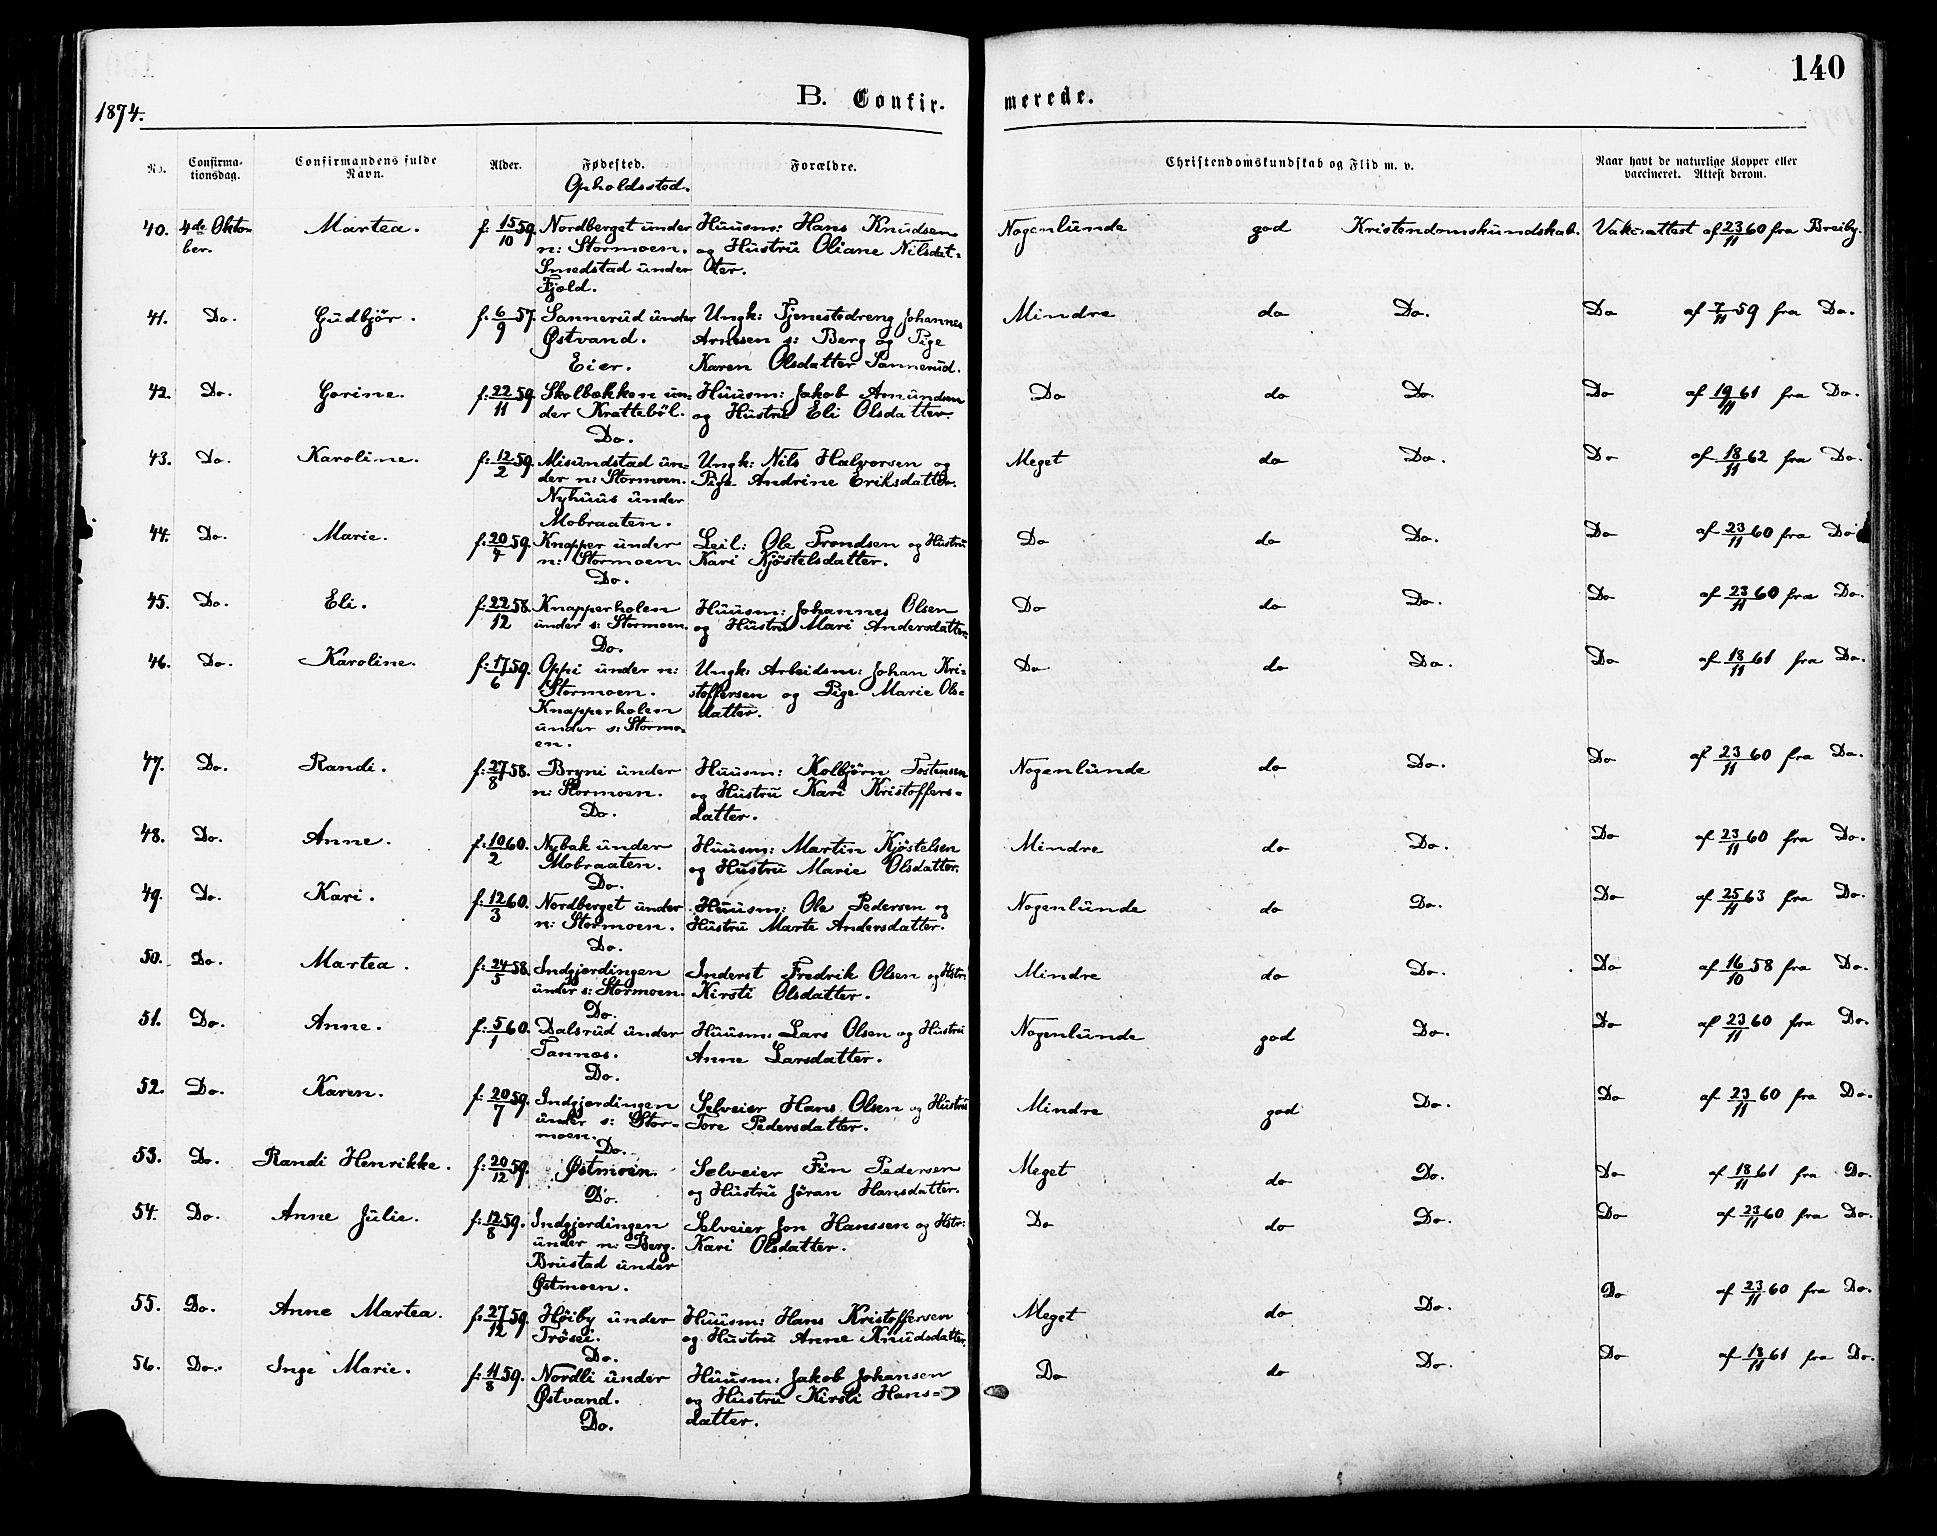 140
B. Confir-
merede.
1874.
No. Confirma-tionsdag. Confirmandens fulde Navn. Alder. Fødested. Opholdssted. Forældre. Christendomskundskab og Flid m. v. Naar havt de naturlige Kopper eller vaccineret. Attest derom.
40. 4de Okto- Martea. f. 15/10 59. Nordberget under Huusm: Hans Knudsen Nogenlunde god Kristendomskundskab. Vakc:attest af 23/11 60 fra Breiby.
ber. n: Stormoen. og Hustru Oliane Nilsdat-
Smedstad under ter.
Fjeld.
41. Do. Gudbjør. f: 6/9 57. Sannerud under Ungk: Tjenestedreng Johannes Mindre do Do. Do af 7/11 59 fra Do.
Østvand. Arnesen s: Berg og Pige
Eier. Karen Olsdatter Sannerud.
42. Do. Gorine. f: 22/11 59. Skolbækken un- Huusm: Jakob Amundsen Do do Do. Do af 19/11 61 fra Do.
der Krattebøl. og Hustru Eli Olsdatter.
Do.
43. Do. Karoline. f: 12/2 59. Misundstad un- Ungk: Nils Halvorsen og Meget do Do. Do af 18/11 62 fra Do.
der n: Stormoen. Pige Andrine Eriksdatter.
Nyhuus under
Mobraaten.
44. Do. Marie. f: 20/4 59. Knapper under Leil: Ole Trondsen og Hustru Do do Do. Do af 23/11 60 fra Do
n: Stormoen. Kari Kjøstelsdatter.
Do.
45. Do. Eli. f: 22/12 58. Knapperholen Huusm: Johannes Olsen Do do Do. Do af 23/11 60 fra Do.
under s: Stormoen. og Hustru Mari Andersdatter.
Do.
46. Do. Karoline. f: 17/6 59. Oppi under n: Ungk: Arbeidsm: Johan Kri- Do do Do. Do af 18/11 61 fra Do.
Stormoen. stoffersen og Pige Marie Ols-
Knapperholen datter.
under s: Stormo-
en.
47. Do. Randi. f: 27/8 58. Bryni under Huusm: Kolbjørn Tostensen Nogenlunde do Do. Do af 23/11 60 fra Do.
n: Stormoen. og Hustru Kari Kristoffers-
Do. datter.
48. Do. Anne. f: 10/2 60. Nybak under Huusm: Martin Kjøstelsen Mindre do Do. Do af 23/11 60 fra Do.
Mobraaten. og Hustru Marie Olsdatter.
Do.
49. Do. Kari. f: 12/3 60. Nordberget under Huusm: Ole Pedersen og Nogenlunde do Do. Do af 25/11 63 fra Do.
n: Stormoen. Hustru Marte Andersdatter.
Do.
50. Do. Martea. f: 24/5 58. Indgjerdingen Inderst Fredrik Olsen og Hstr: Mindre do Do. Do af 16/10 58 fra Do.
under s: Stormoen. Kirsti Olsdatter.
Do.
51. Do. Anne. f: 5/1 60. Dalsrud under Huusm: Lars Olsen og Hustru Nogenlunde god Do. Do af 23/11 60 fra Do.
Tannæs. Anne Larsdatter.
Do.
52. Do. Karen. f: 20/7 59. Indgjerdingen Selveier Hans Olsen og Hustru Mindre god Do. Do af 23/11 60 fra Do.
under s: Stor- Tore Pedersdatter.
moen.
Do.
53. Do. Randi Henrikke. f: 20/12 59. Østmoen. Selveier Fin Pedersen Meget do Do. Do af 18/11 61 fra Do.
Do. og Hustru Jøran Hansdatter.
54. Do. Anne Julie. f: 12/8 59. Indgjerdingen Selveier Jon Hanssen og Hstr: Do do Do. Do af 23/11 60 fra Do.
under n: Berg. Kari Olsdatter.
Brustad under
Østmoen.
55. Do. Anne Martea. f: 27/12 59. Høiby under Huusm: Hans Kristoffersen Meget do Do. Do af 23/11 60 fra Do.
Trøsei. og Hustru Anne Knudsdatter.
Do.
56. Do. Inge Marie. f: 11/8 59. Nordli under Huusm: Jakob Johansen Do do Do. Do af 18/11 61 fra Do.
Østvand. og Hustru Kirsti Hans-
Do. datter.